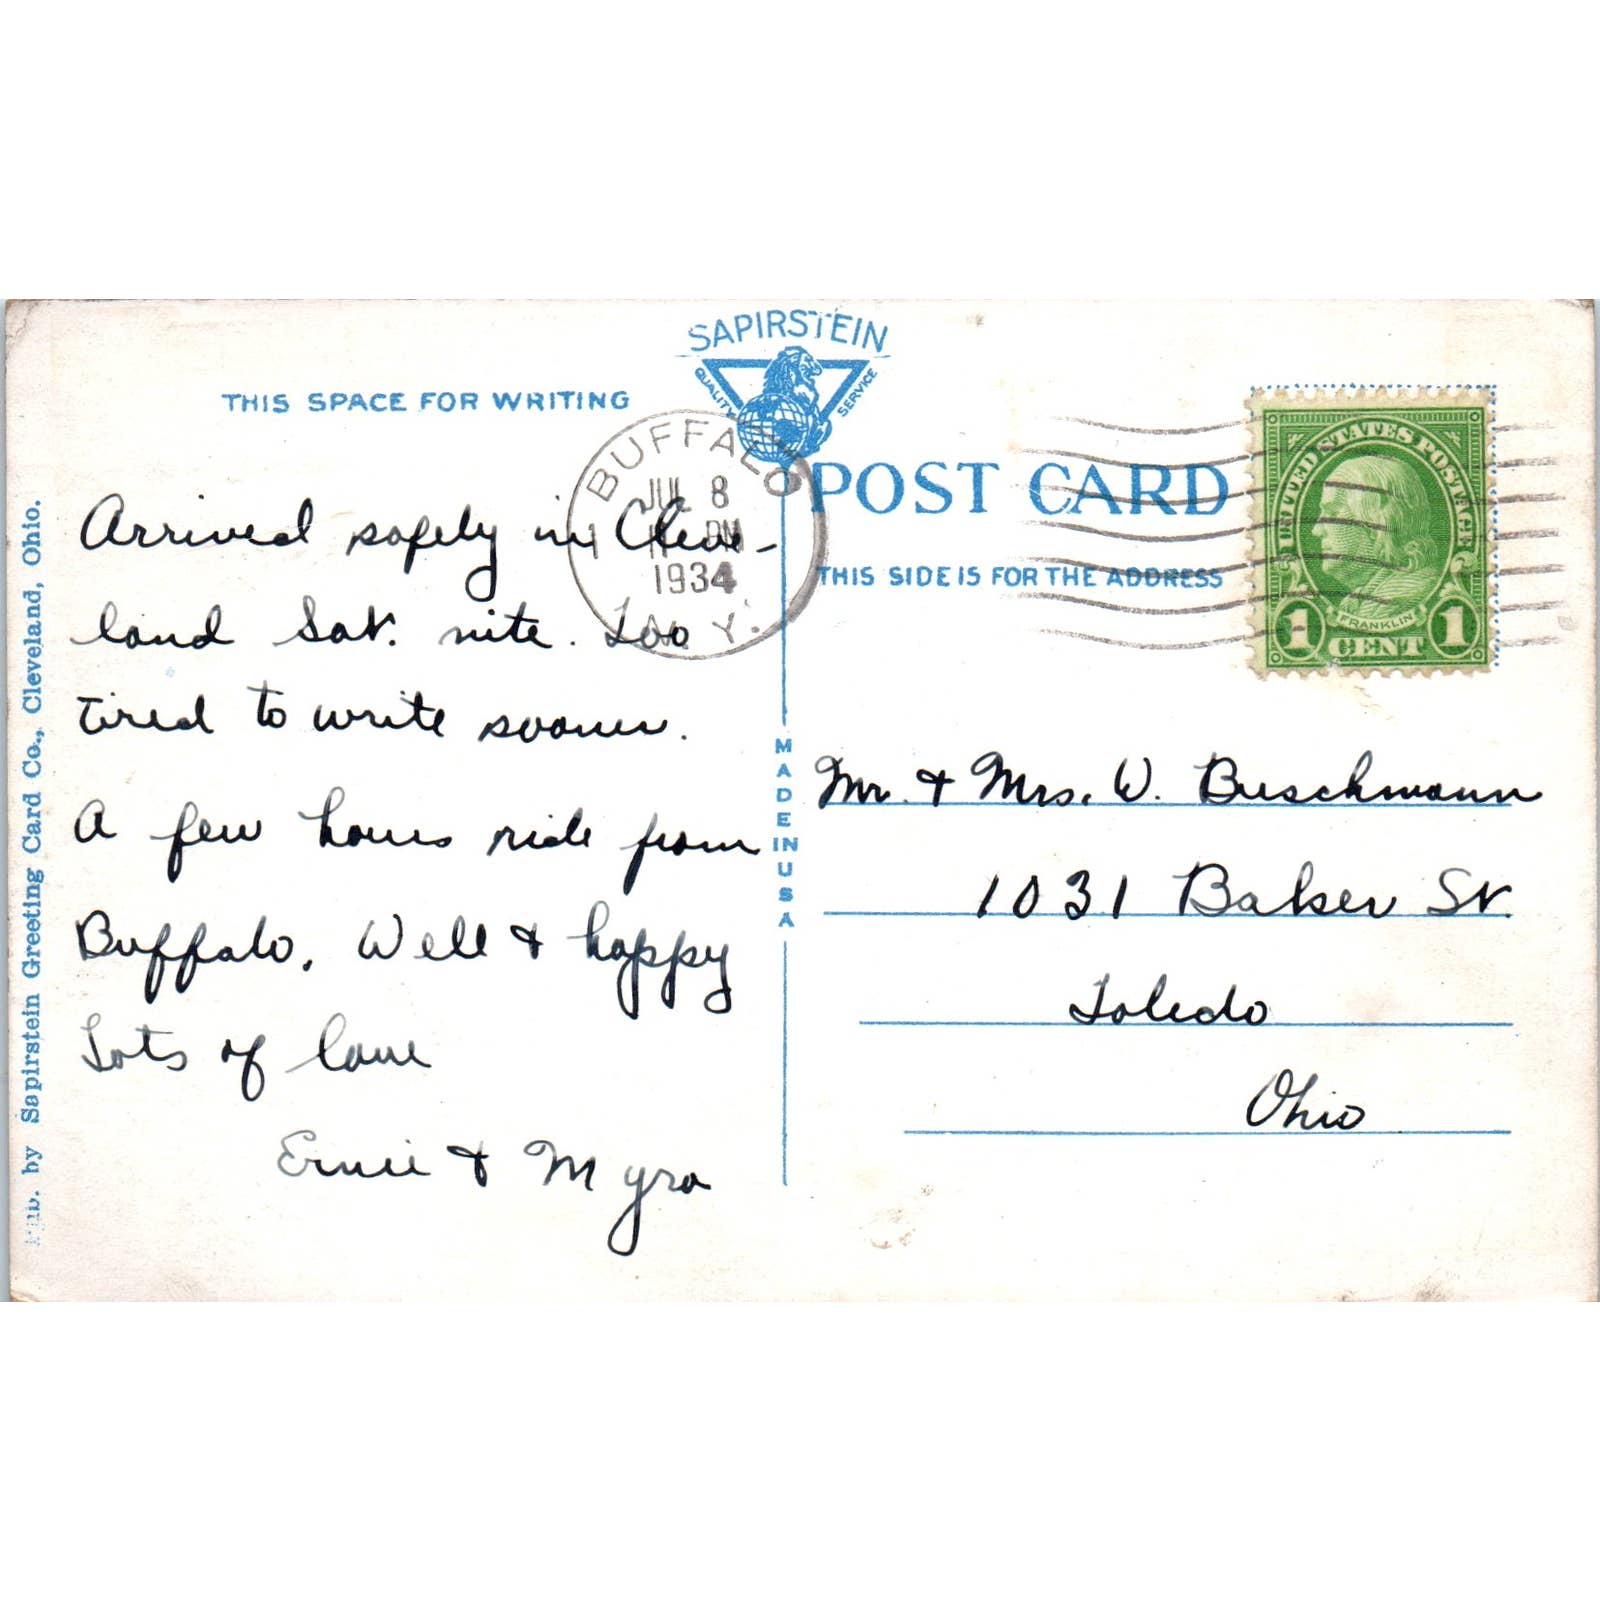 SAPIRSTEIN
QUALITY SERVICE
THIS SPACE FOR WRITING
BUFFALO
JUL 8
PM
1934
N.Y.
POST CARD
THIS SIDE IS FOR THE ADDRESS
UNITED STATES POSTAGE
FRANKLIN
1 CENT 1
Arrived safely in Cleve-
land Sat. nite. Too
tired to write sooner.
A few hours ride from
Buffalo. Well & happy
Lots of love
Ernie & Myra
MADE IN USA
Mr. & Mrs. W. Buschmann
1031 Baker St.
Toledo
Ohio
Pub. by Sapirstein Greeting Card Co., Cleveland, Ohio.